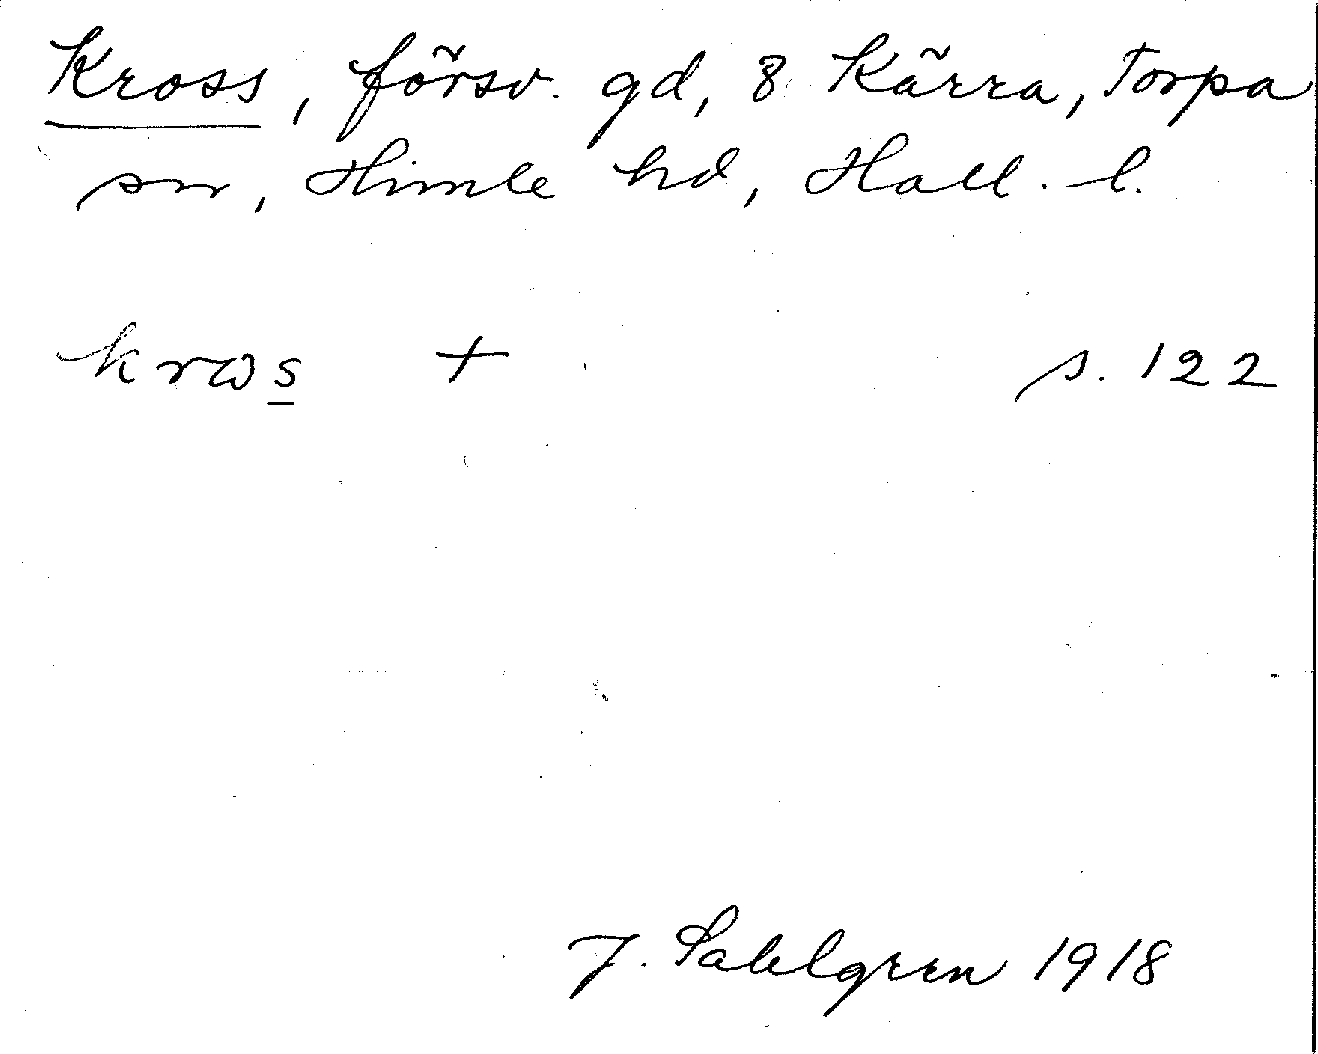 Kross, försv. gd, 8 Kärra, Torpa
sn, Himle hd, Hall. l.
krɷs + s. 122
J. Sahlgren 1918